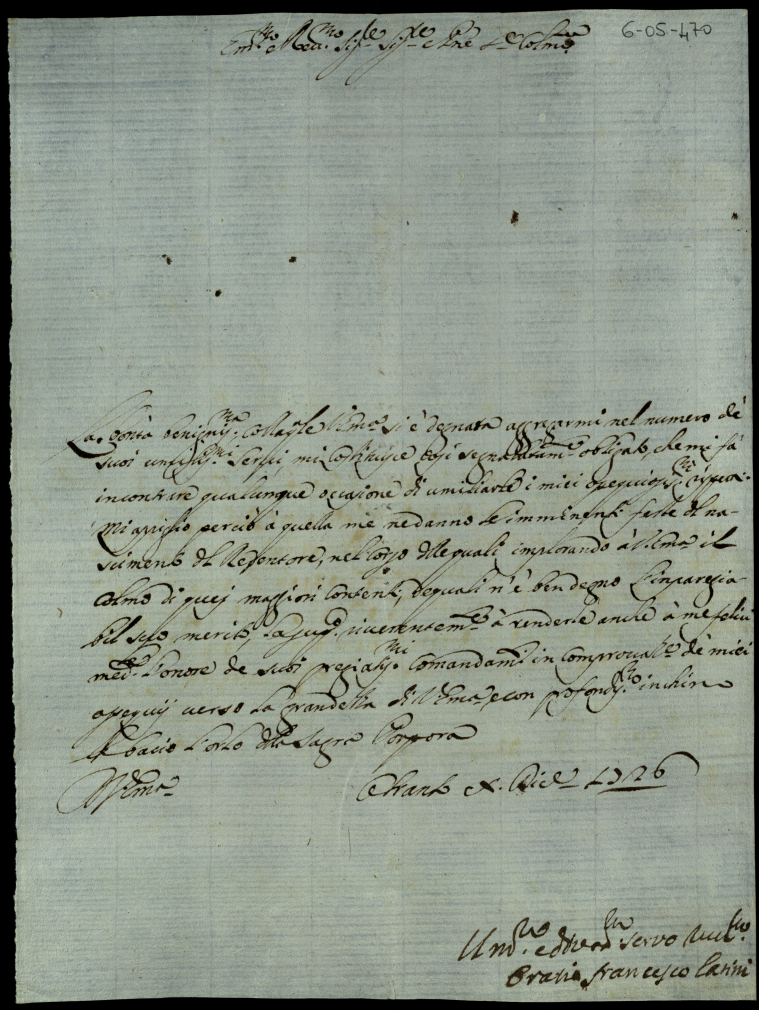 6-05-470
Em.mo e Rev.mo Sig.re Sig.re e Pne Col.mo
La bontà benigniss.ma colla q.le V. Em.a si è degnata aggregarmi nel numero dè
suoi Servi, mi costituisce così obligato, che mi fà
incontrare qualunque occasione di umiliarle i miei ossequiosiss.mi
Mi appiglio perciò à quella me ne danno le imminenti feste del na-
scimento del Redentore, nel corso delle quali implorando à V. Em.a il
colmo di quej maggiori contenti, de quali n'è ben degno l'inparegia-
bil suo merito, riverentem.te à renderle anche à me felici
med.e l'onore de suoi pregiatiss.mi comandam.ti in comprovaz.e dè miei
ossequij verso la grandezza di V. Em.a, e con profondiss.mo inchino
le bacio l'orlo della Sagra Porpora
V. Em.a
Dic.e 1726
Um.mo e Servo
Francesco